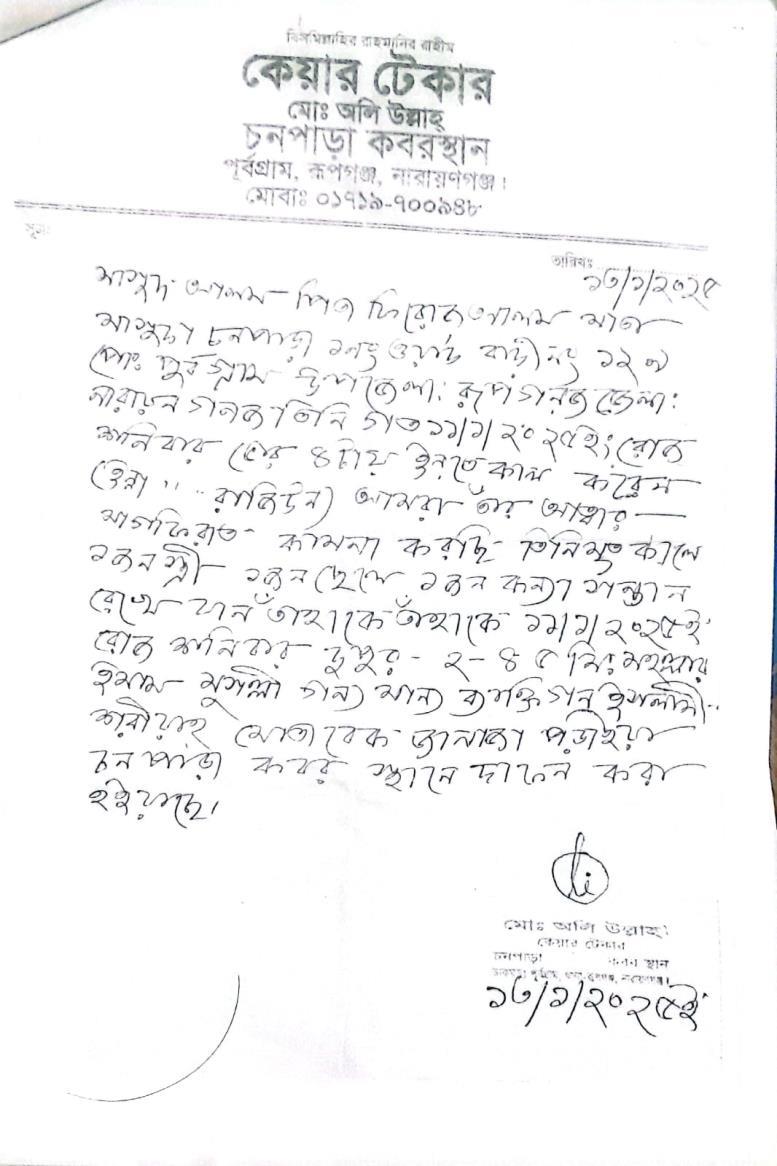 বিসমিল্লাহির রাহমানির রাহীম
কেয়ার টেকার
মোঃ অলি উল্লাহ্
চনপাড়া কবরস্থান
পূর্বগ্রাম, রূপগঞ্জ, নারায়ণগঞ্জ।
মোবাঃ ০১৭১৯-৭০০৯৪৮
সূত্রঃ
তারিখঃ ১৩/১/২০২৫
মাসুদ আলম - পিতা ফিরোজ আলম মাতা
মাসুদা চনপাড়া ১নং ওয়ার্ড বাড়ী নং ১২৩
পোঃ পুর্ব গ্রাম উপজেলা: রূপগন্জ জেলা:
নারায়ন গনজ তিনি গত ১১/১/২০২৫ইং রোজ
শনিবার ভোর ৪টায় ইনতেকাল করেন
(ইন্না ،، .. রাজিউন) আমরা তাঁর আত্বার —
মাগফিরাত কামনা করছি তিনি মৃত কালে
১জন স্ত্রী ১জন ছেলে ১জন কন্যা সন্তান
রেখে যান তাঁহাকে তাঁহাকে ১১/১/২০২৫ইং
রোজ শনিবার দুপুর - ২-৪৫ মিঃ মহল্লার
ইমাম মুসল্লী গন্য মান্য ব্যক্তিগন ইসলামী
শরীয়াহ মোতাবেক জানাজা পড়াইয়া
চনপাড়া কবর স্থানে দাফন করা
হইয়াছে।
মোঃ অলি উল্লাহ্
কেয়ার টেকার
চনপাড়া কবর স্থান
১৩/১/২০২৫ইং